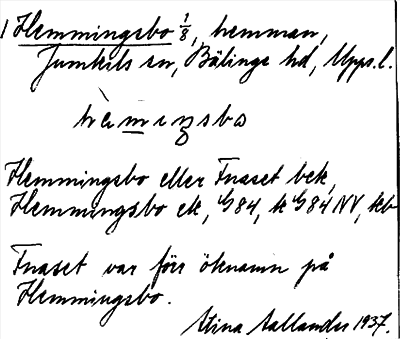 1 Hemmingsbo 1/8, hemman,
Jumkils sn, Bälinge hd, Upps. l.
hèmiŋsbω
Hemmingsbo eller Fnaset bek,
Hemmingsbo ek, G84, k G84 NV, kb
Fnaset var förr öknamn på
Hemmingsbo.
Stina Sallander 1937.